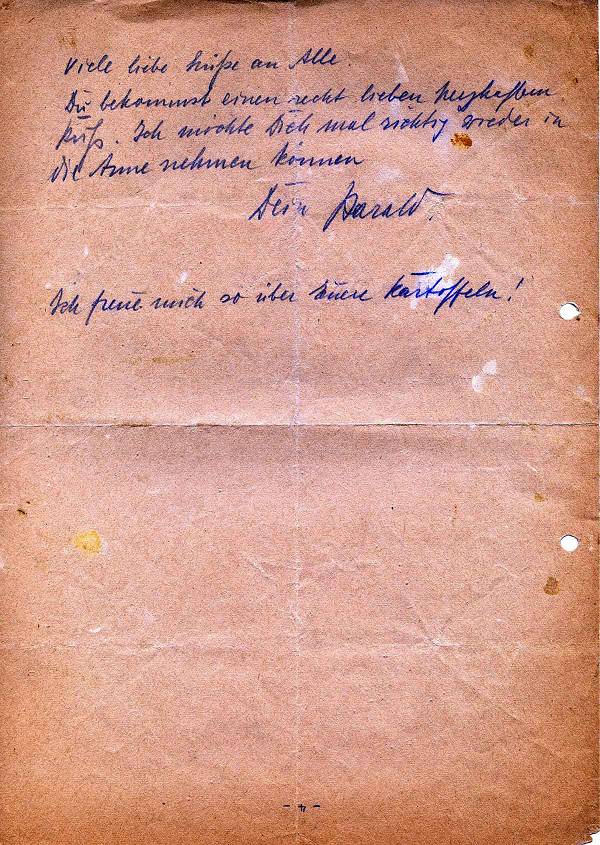 Viele liebe Grüße an Alle.
Du bekommst einen recht lieben herzhaften
Kuß. Ich möchte Dich mal richtig wieder in
die Arme nehmen können
Dein Harald.
Ich freue mich so über Euere Kartoffeln!
- 4 -